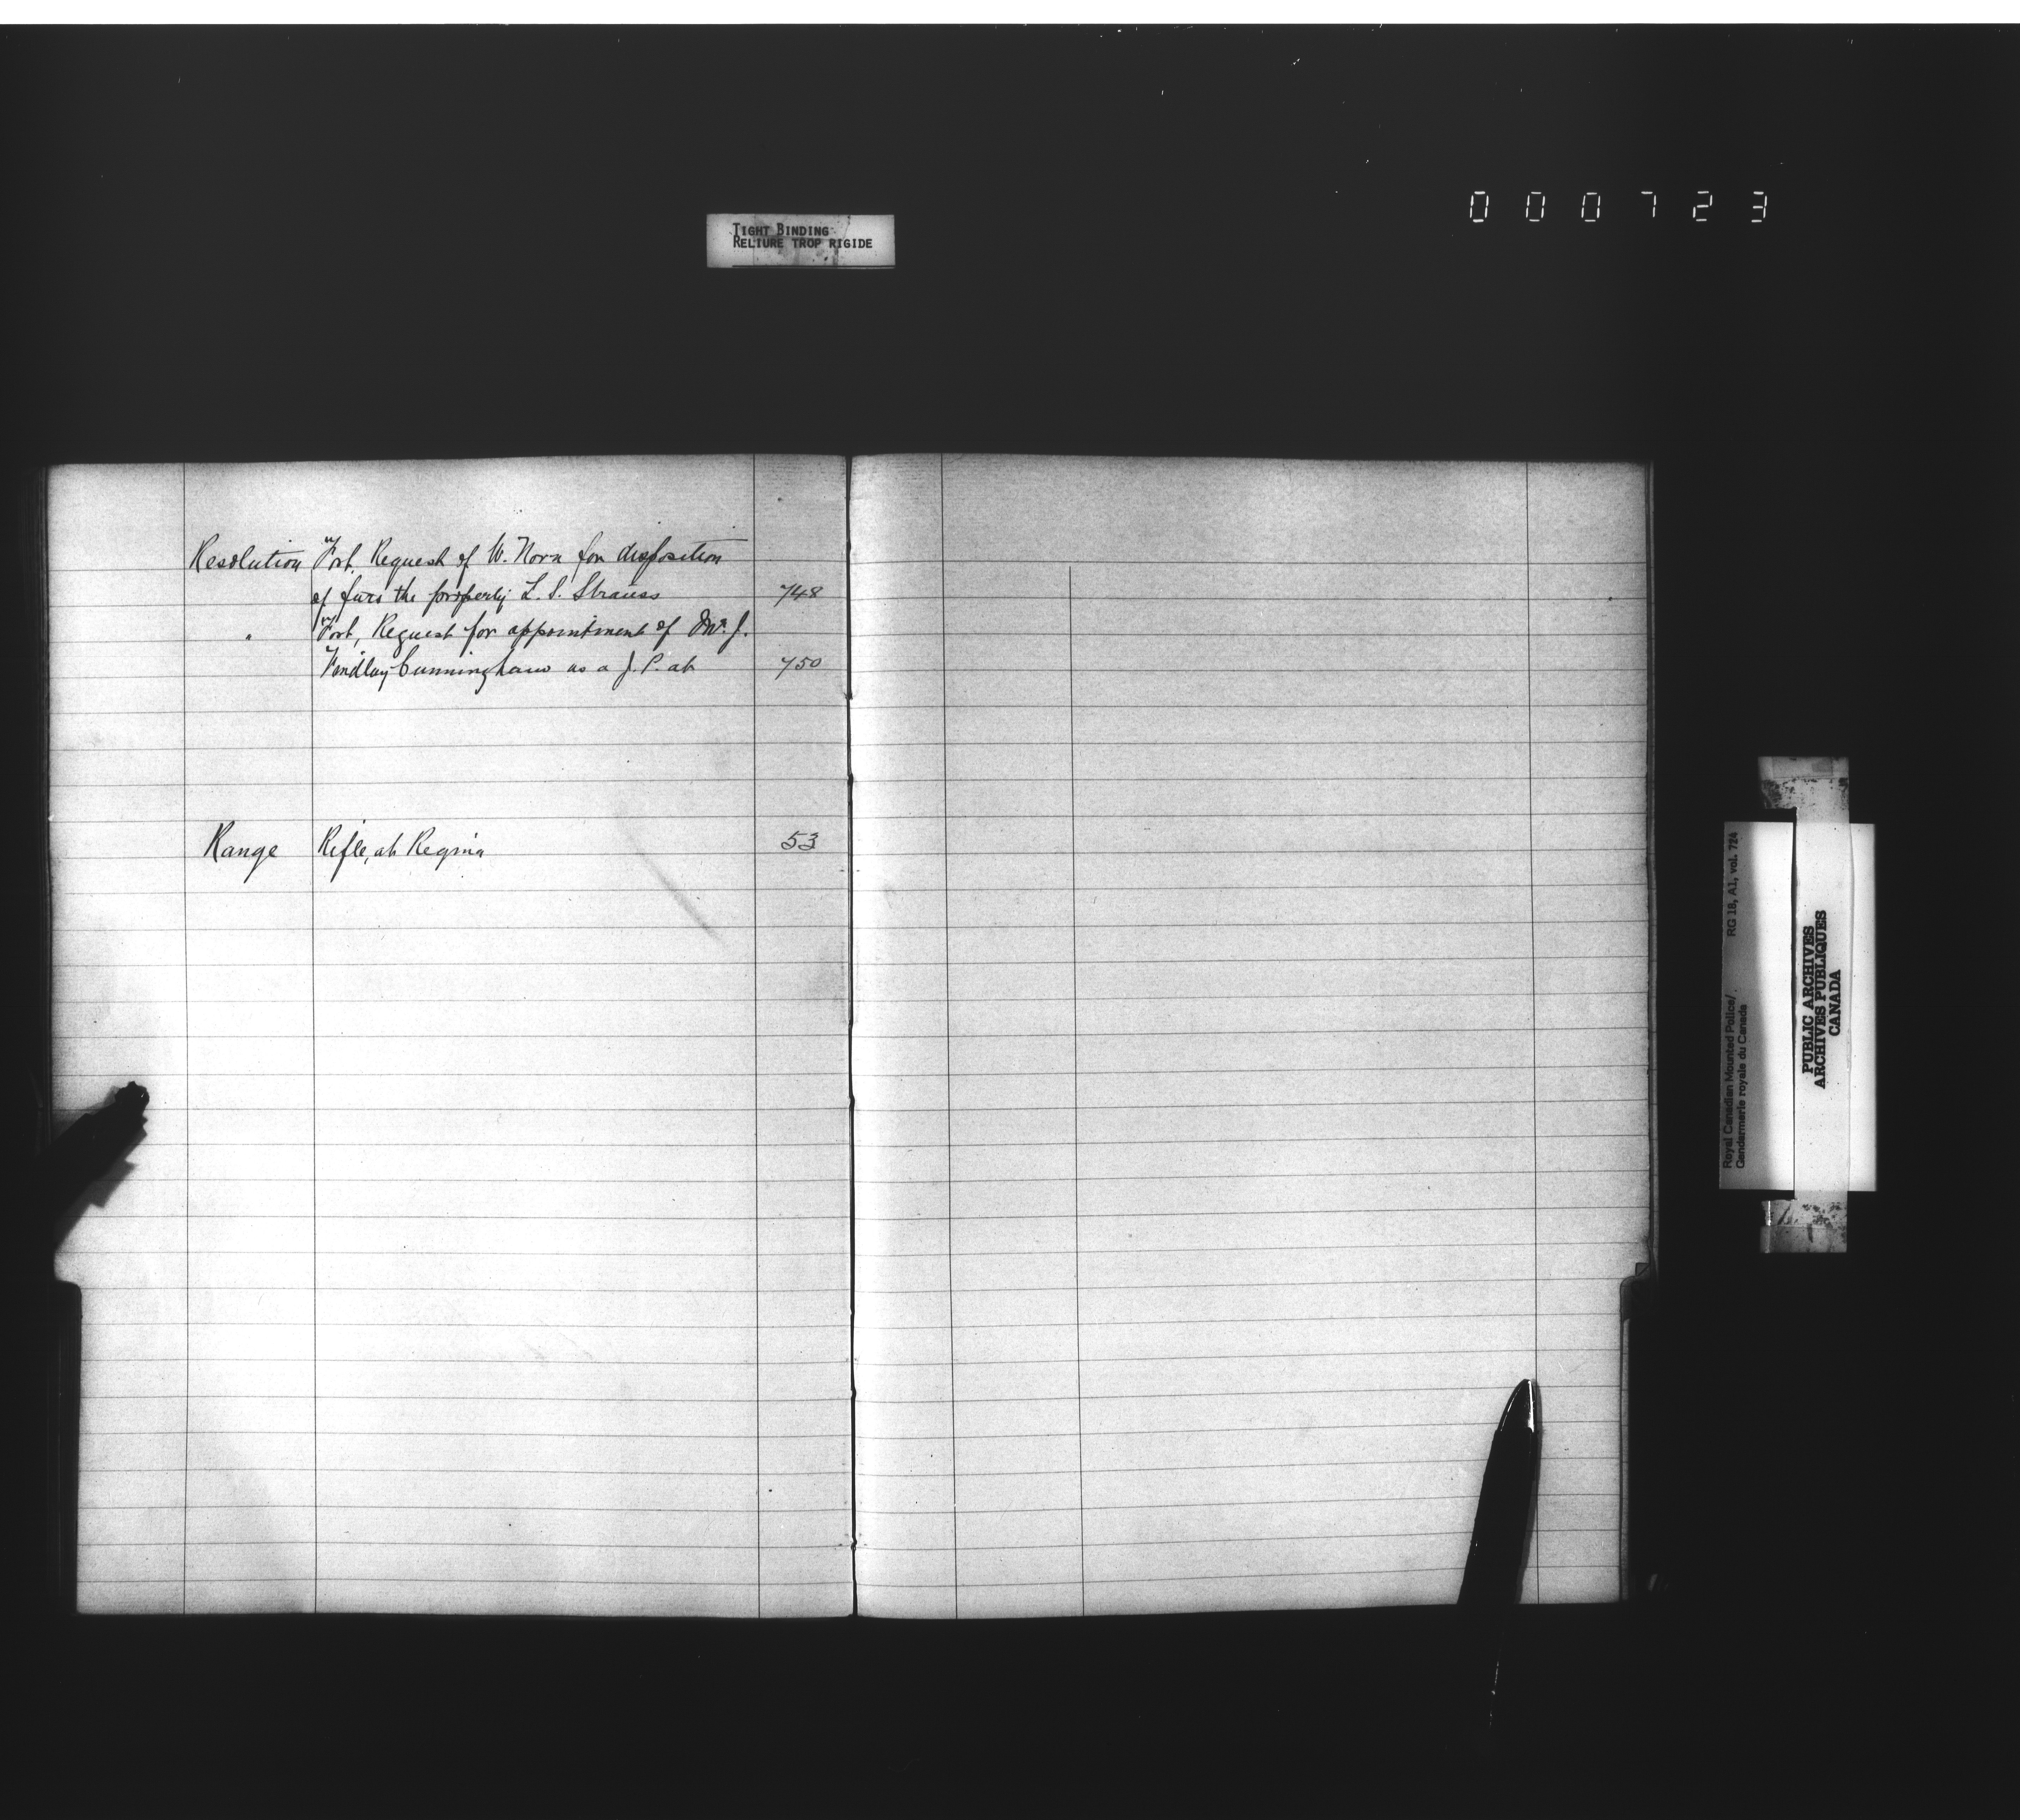 0 0 0 7 2 3
TIGHT BINDING
RELIURE TROP RIGIDE
Resolution Fort, Request of W. Norn for disposition
of furs the property L. S. Strauss 748
" Fort, Request for appointment of Mr. J.
Findlay Cunningham as a J. P. at 750
Range Rifle, at Regina 53
Royal Canadian Mounted Police/ RG 18, A1, vol. 724
Gendarmerie royale du Canada
PUBLIC ARCHIVES
ARCHIVES PUBLIQUES
CANADA